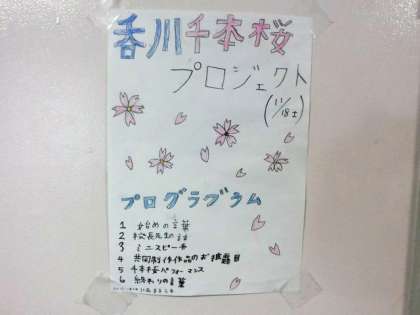 香川千本桜
プロジェクト
(11/18土)
プログラグウム
1 始めの言葉
2 校長先生の話
3 ミニスピーチ
4 共同制作作品のお披露目
5 千本桜パフォーマンス
6 終わりの言葉